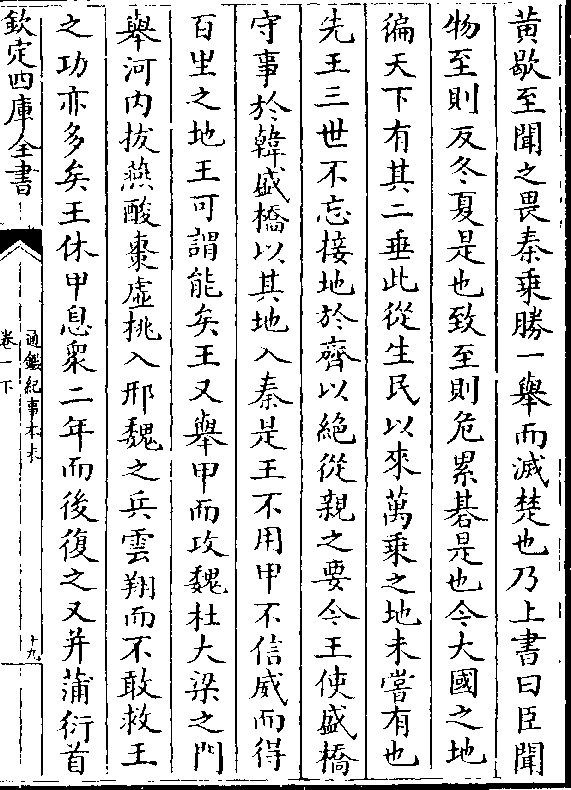 黄歇至聞之畏秦乗勝一舉而滅楚也乃上書曰臣聞
物至則反冬夏是也致至則危累碁是也今大國之地
徧天下有其二垂此從生民以來萬乗之地未嘗有也
先王三世不忘接地於齊以絶從親之要今王使盛橋
守事於韓盛橋以其地入秦是王不用甲不信威而得
百里之地王可謂能矣王又舉甲而攻魏杜大梁之門
舉河内拔燕酸棗虚桃入邢魏之兵雲翔而不敢救王
之功亦多矣王休甲息衆二年而後復之又并蒲衍首
欽定四庫全書
通鑑紀事本末
卷一下
十九